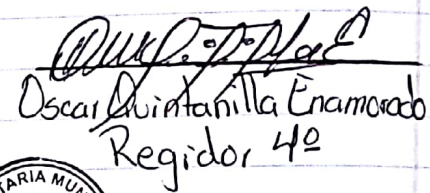 Oscar Quintanilla Enamorado
Regidor 4º
TARIA MUN